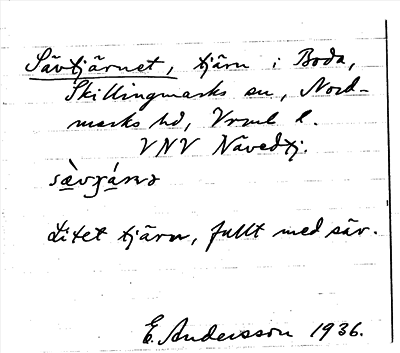 Sävtjärnet, tjärn i Boda,
Skillingmarks sn, Nord-
marks hd, Vrml l.
VNV Nävedtj.
sæ̀vɟánə
Litet tjärn, fullt med säv.
E. Andersson 1936.